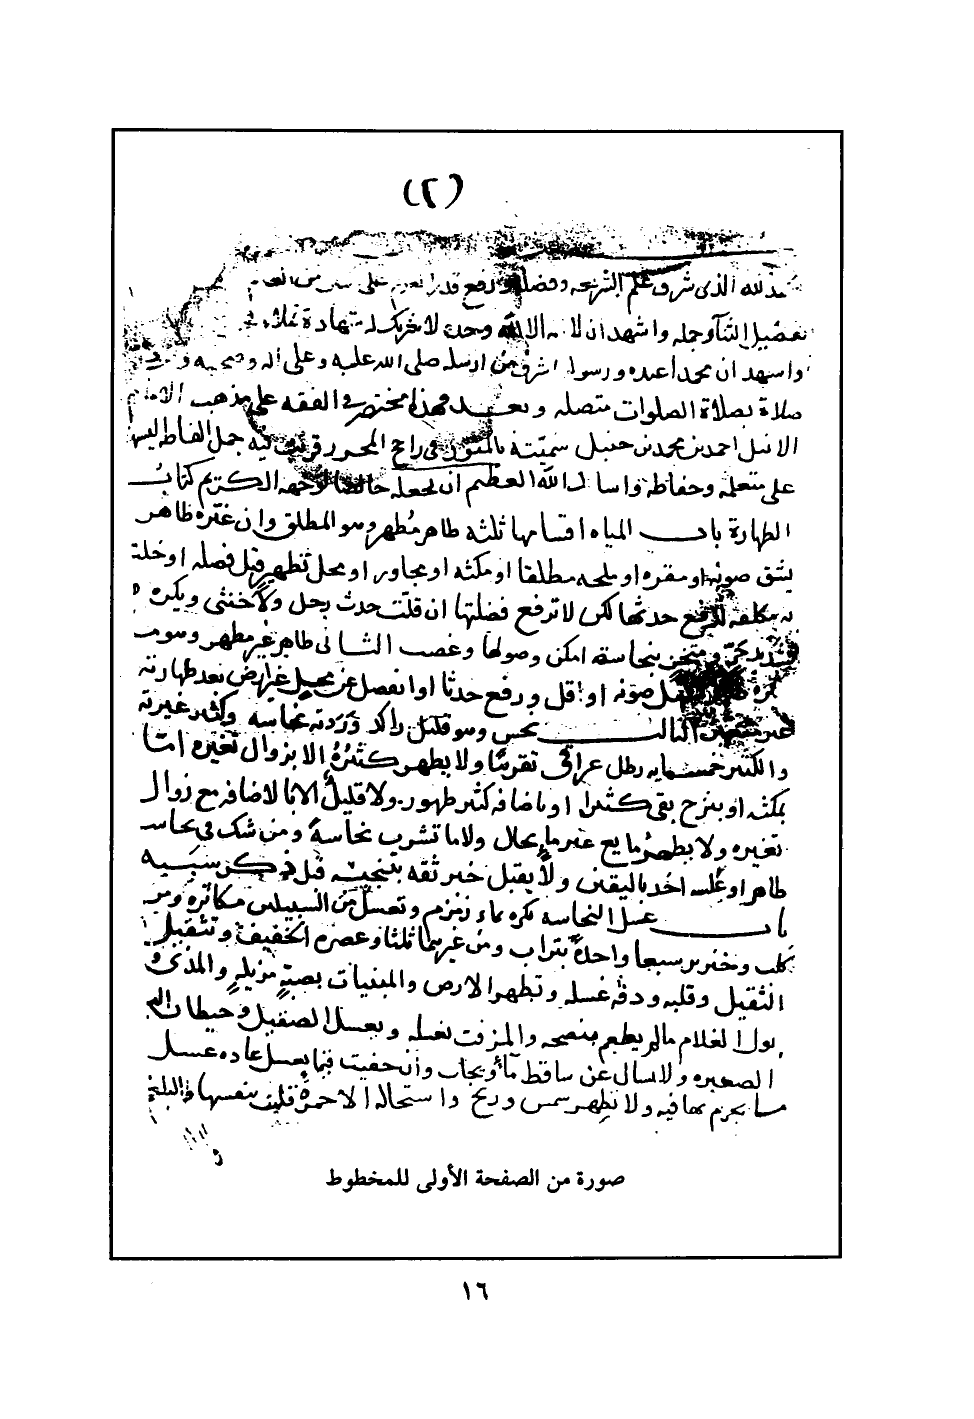 (٢)
لله الذى شرف علم الشريعه وفضله ورفع قدر على
تفضيل الثنا وجله واشهد ان لا اله الا الله وحده لا شريك له شهادة
واسهد ان محمدا عبده ورسوله اشرف من ارسله صلى الله عليه وعلى اله وصحبه
صلاة بصلاة الصلوات متصله وبعد فهذا مختصر فى الفقه على مذهب الامام
الانبل احمد بن محمد بن حنبل سميته بالمنور فى راجح المحرر قربت فيه جمل الفاظه ليسهل
على متعلمه وحفاظه واسال الله العظيم ان يجعله خالصا لوجهه الكريم كتاب
الطهارة باب المياه اقسامها ثلثه طاهر مطهر وهو المطلق وان غيره طاهر
يشق صونه او مقره او ملحه مطلقا او مكثه او مجاور او محل تطهير قبل فصله او خلت
به مكلفه لم ترفع حدثها لكن لا ترفع فضلتها ان قلت حدث رجل ولا خنثى ويكره
شديد حر ومسخن بنجاسة امكن وصولها وغصب الثانى طاهر غير مطهر وهو
صونه او اقل ورفع حدثا او انفصل عن محل غير ارض بعد طهارته
غير متغير الثالث نجس وهو قليل راكد وردته نجاسه وكثير غيرته
والكثير خمسمايه رطل عراقى تقريبا ولا يطهر كثيره الا بزوال تغيره اما
بمكثه او بنزح بقى كثيرا او باضافه كثير طهور ولا قليل الا بالاضافه مع زوال
تغيره ولا يطهر مايع غير ما بحال ولا ما تشرب نجاسة ومن شك فى نجاسه
طاهر او عكسه اخذ باليقين ولا يقبل خبر ثقه بتنجيسه قبل ذكر سببه
باب غسل النجاسه يكره بماء زمزم وتغسل من السبيلين مكاثره ومن
كلب وخنزير سبعا واحدة بتراب ومن غيرهما ثلثا وعصره الخفيف وتثقيل
الثقيل وقلبه ودقه غسله وتطهر الارض والمبنيات بصبة مزيله والمذى و
بول الغلام مالم يطعم بنضحه والمزفت بغسله ويغسل الصقيل وحيطان
الصغيره ولا يسال عن ساقط ماء ويجاب وان خفيت فيما يغسل عاده غسل
ما يجزم بها فيه ولا تطهر شمس وريح واستحالة الا خمرة قلبت بنفسها
صورة من الصفحة الأولى للمخطوط
١٦